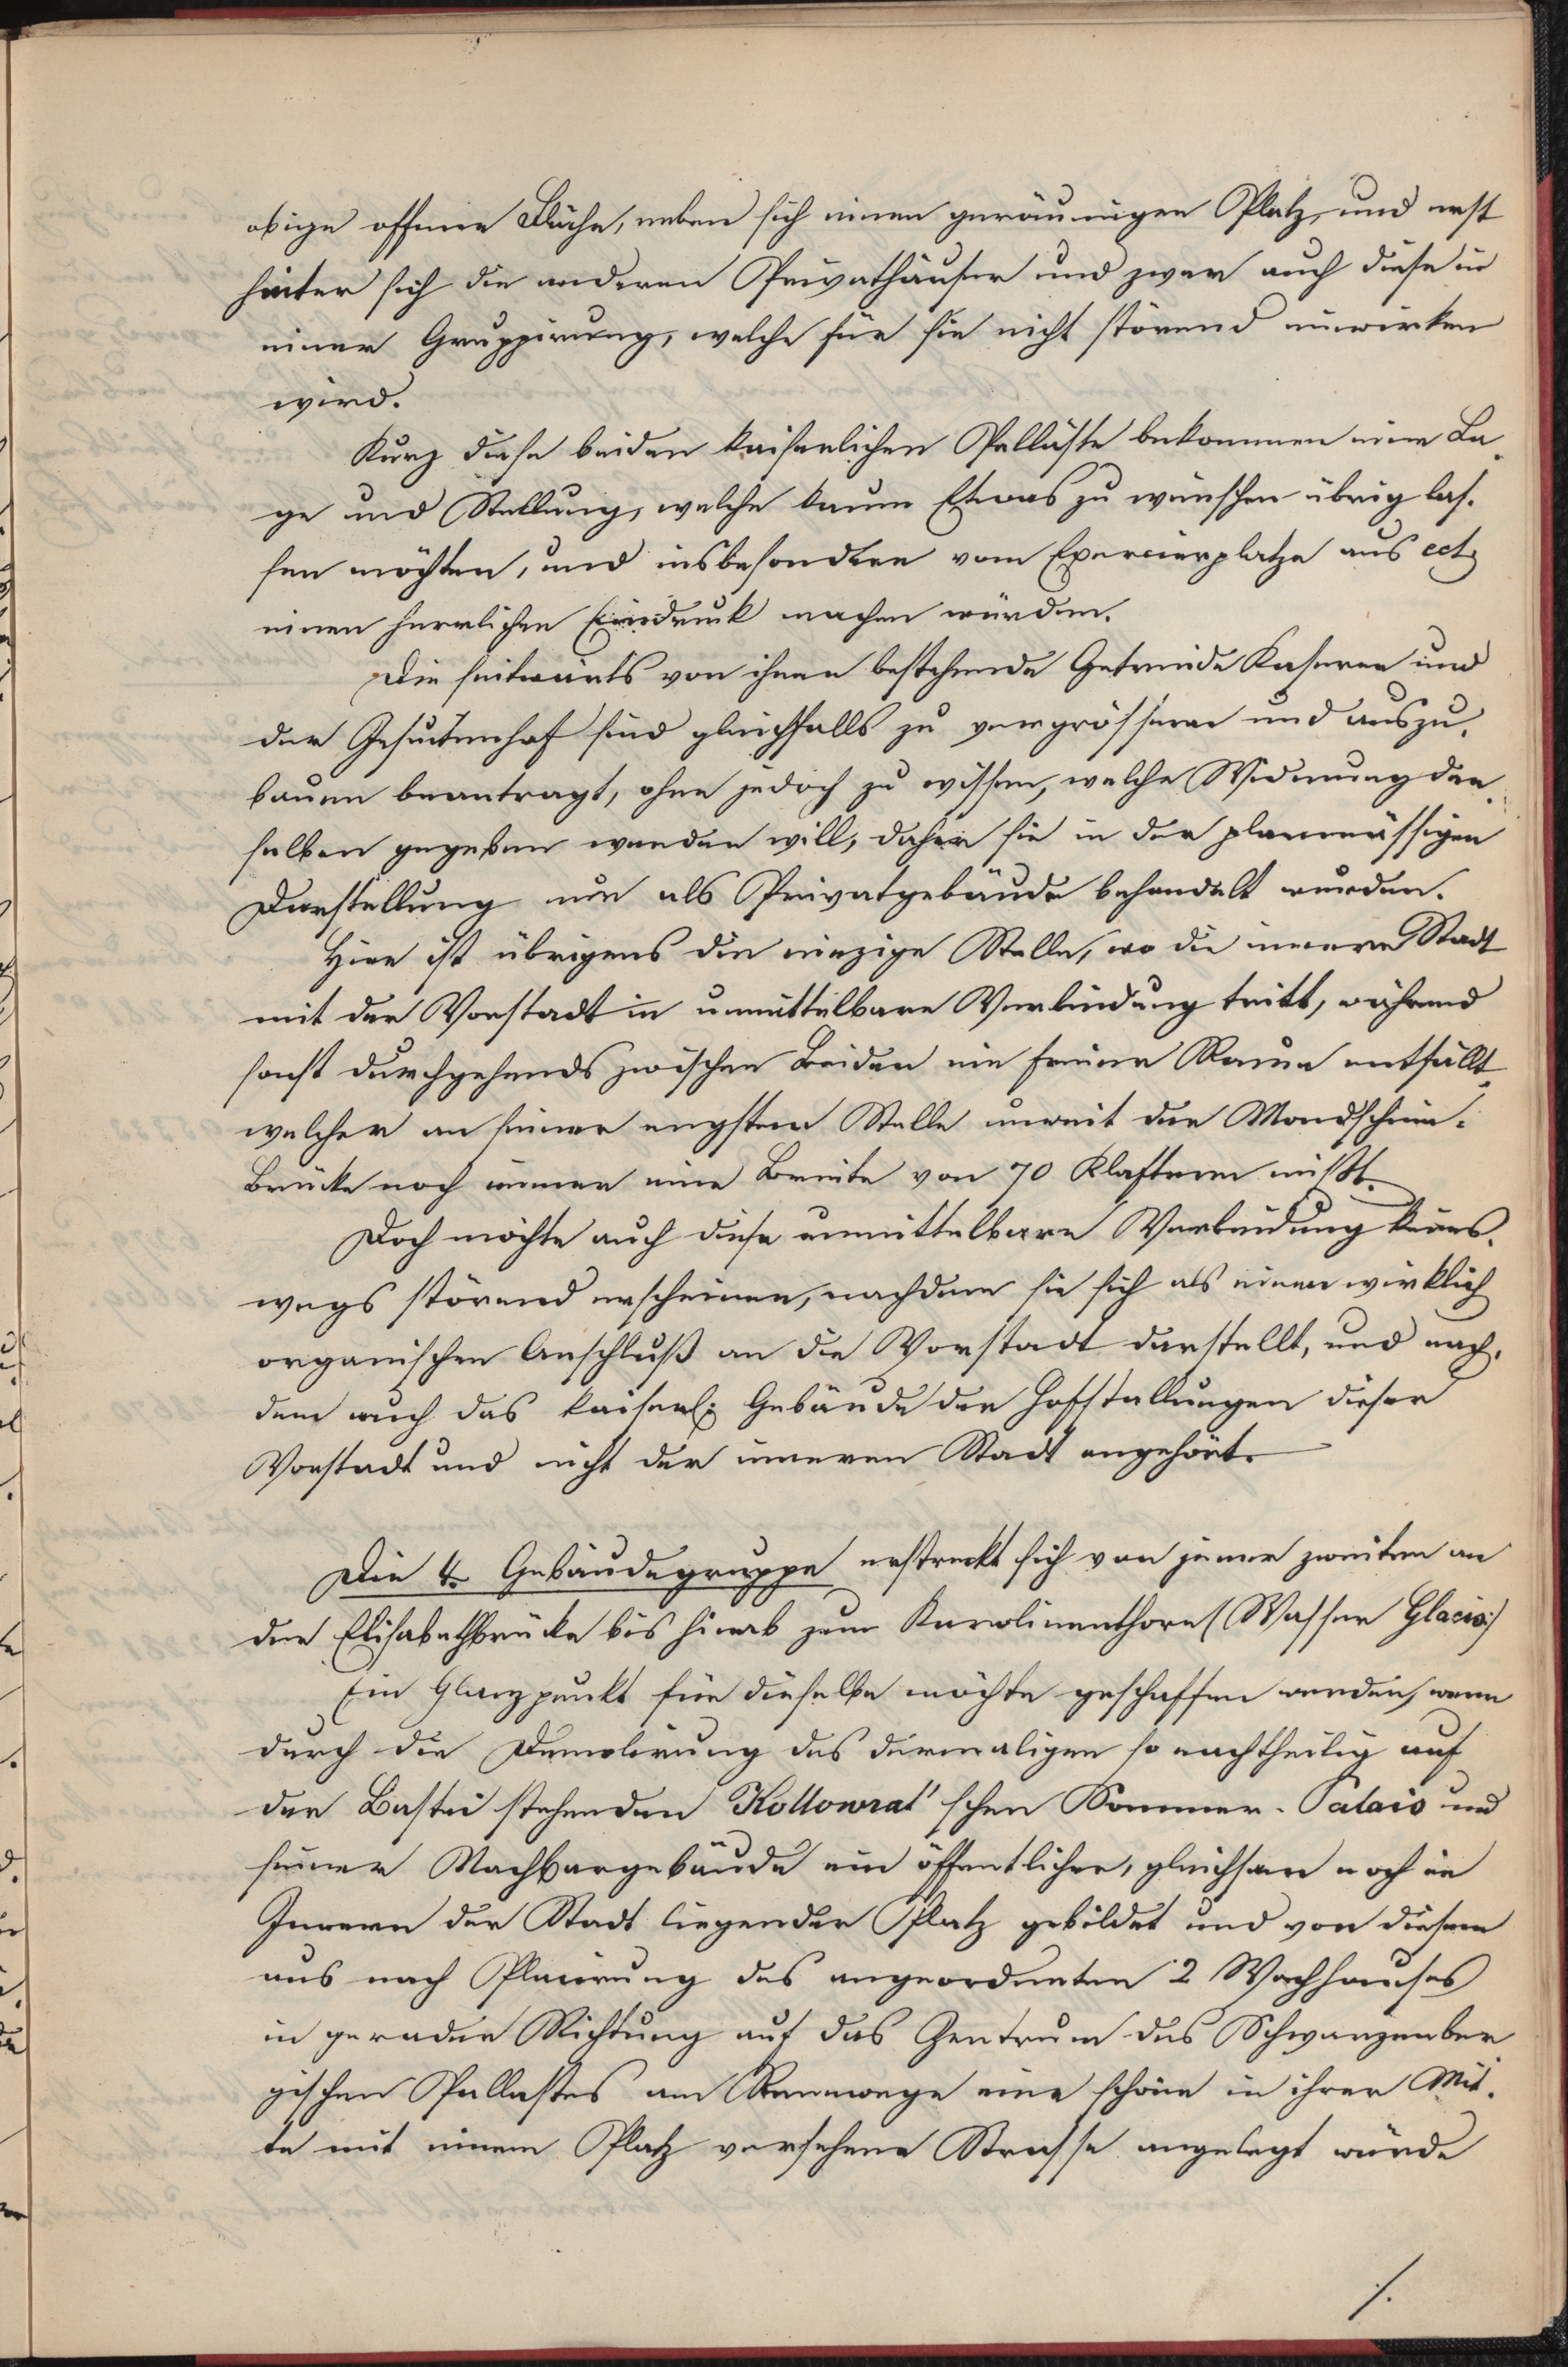 obige offene Fläche, neben sich einen geräumigen Platz, und erst
hinter sich die anderen Privathäuser und zwar auch diese in
einer Gruppirung, welche für sie nicht störend einwirken
wird.
Kurz diese beiden kaiserlichen Palläste bekommen eine La-
ge und Stellung, welche kaum Etwas zu wünschen übrig las-
sen möchten, und insbesondere vom Exercierplatze aus ect
einen herrlichen Eindruck machen würden.
Die seitwärts von ihnen bestehende Getreide Kaserne und
der Jesuitenhof sind gleichfalls zu vergrössern und auszu-
bauen beantragt, ohne jedoch zu wissen, welche Widmung den
selben gegeben werden will, daher sie in der planmässigen
Darstellung nur als Privatgebäude behandelt wurden.
Hier ist übrigens die einzige Stelle, wo die innere Stadt
mit der Vorstadt in unmittelbare Verbindung tritt, während
sonst durchgehends zwischen Beiden ein freier Raum entfällt,
welcher an seiner engsten Stelle unweit der Mondschein-
Brücke noch immer eine Breite von 70 Klaftern mißt.
Doch möchte auch diese unmittelbare Verbindung keines-
wegs störend erscheinen, nachdem sie sich als einen wirklich
organischen Anschluß an die Vorstadt darstellt, und nach-
dem auch das kaiserl: Gebäude der Hofstallungen dieser
Vorstadt und nicht der inneren Stadt angehört.
Die 4. Gebäudegruppe erstreckt sich von jener zweiten an
der Elisabethbrücke bis hinab zum Karolinenthore (Wasser Glacis:)
Ein Glanzpunkt für dieselbe möchte geschaffen werden, wenn
durch die Demolirung des dermaligen so nachtheilig auf
der Bastei stehenden Kollowrat'schen Sommer-Palais und
seiner Nachbargebäude ein öffentlicher, gleichsam noch im
Innern der Stadt liegender Platz gebildet und von diesem
aus nach Placirung des angeordneten 2 Wachhauses
in gerader Richtung auf das Zentrum des Schwarzenber
gischen Pallastes am Rennwege eine schöne in ihrer Mit-
te mit einem Platz versehene Strasse angelegt würde
./.